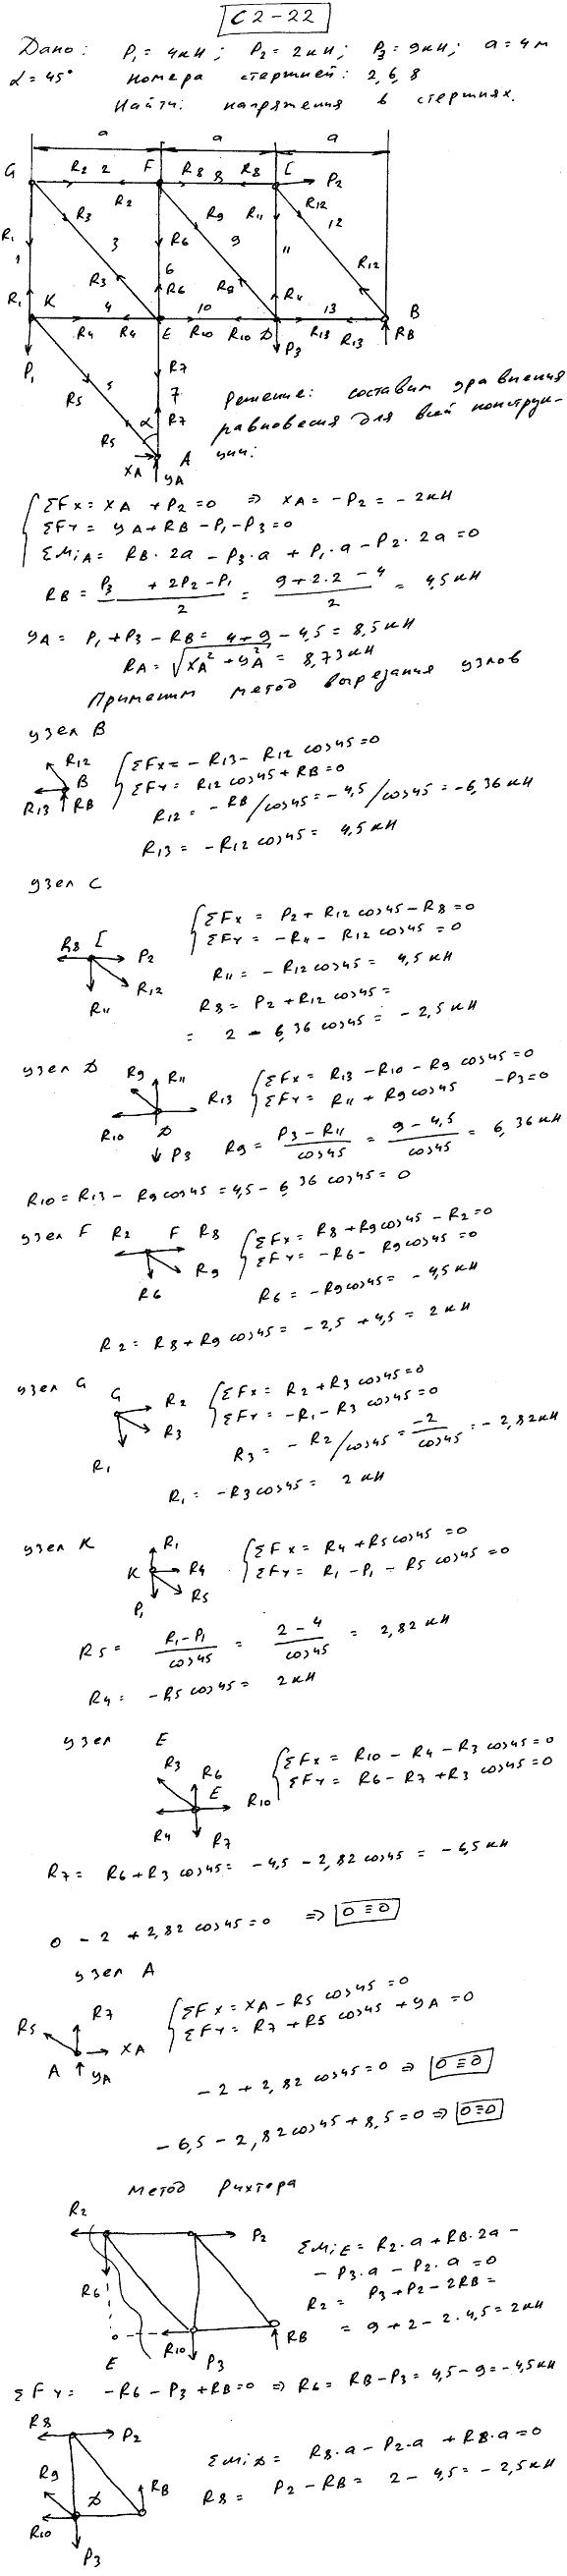 С2-22
Дано: P₁ = 4кН; P₂ = 2кН; P₃ = 9кН; a = 4м
α = 45° номера стержней: 2, 6, 8
Найти: напряжения в стержнях.
a a a
G R₂ 2 R₂ F R₈ 8 R₈ C P₂
R₁ 1 R₁ R₃ 3 R₃ R₆ 6 R₆ R₉ 9 R₉ R₁₁ 11 R₁₁ R₁₂ 12 R₁₂
K 4 R₄ R₄ E 10 R₁₀ R₁₀ D 13 R₁₃ R₁₃ B
P₁ P₃ RB
R₅ 5 R₅ α R₇ 7 R₇
XA A YA
Решение: составим уравнения
равновесия для всей конструк-
ции:
ΣFx = XA + P₂ = 0 ⇒ XA = -P₂ = -2кН
ΣFY = YA + RB - P₁ - P₃ = 0
ΣMiA = RB·2a - P₃·a + P₁·a - P₂·2a = 0
RB = (P₃ + 2P₂ - P₁)/2 = (9+2·2-4)/2 = 4,5кН
YA = P₁ + P₃ - RB = 4+9-4,5 = 8,5кН
RA = √(XA² + YA²) = 8,73кН
Применим метод вырезания узлов
узел B
R₁₂ B R₁₃ RB
ΣFx = -R₁₃ - R₁₂ cos45 = 0
ΣFY = R₁₂ cos45 + RB = 0
R₁₂ = -RB/cos45 = -4,5/cos45 = -6,36кН
R₁₃ = -R₁₂ cos45 = 4,5кН
узел C
R₈ C P₂ R₁₂ R₁₁
ΣFx = P₂ + R₁₂ cos45 - R₈ = 0
ΣFY = -R₁₁ - R₁₂ cos45 = 0
R₁₁ = -R₁₂ cos45 = 4,5кН
R₈ = P₂ + R₁₂ cos45 =
= 2 - 6,36 cos45 = -2,5кН
узел D
R₉ R₁₁ R₁₃ R₁₀ D P₃
ΣFx = R₁₃ - R₁₀ - R₉ cos45 = 0
ΣFY = R₁₁ + R₉cos45 - P₃ = 0
R₉ = (P₃ - R₁₁)/cos45 = (9 - 4,5)/cos45 = 6,36кН
R₁₀ = R₁₃ - R₉cos45 = 4,5 - 6,36 cos45 = 0
узел F
R₂ F R₈ R₉ R₆
ΣFx = R₈ + R₉cos45 - R₂ = 0
ΣFY = -R₆ - R₉cos45 = 0
R₆ = -R₉cos45 = -4,5кН
R₂ = R₈ + R₉ cos45 = -2,5 + 4,5 = 2кН
узел G
G R₂ R₃ R₁
ΣFx = R₂ + R₃ cos45 = 0
ΣFY = -R₁ - R₃ cos45 = 0
R₃ = -R₂/cos45 = -2/cos45 = -2,82кН
R₁ = -R₃cos45 = 2кН
узел K
R₁ K R₄ R₅ P₁
ΣFx = R₄ + R₅cos45 = 0
ΣFY = R₁ - P₁ - R₅ cos45 = 0
R₅ = (R₁-P₁)/cos45 = (2-4)/cos45 = 2,82кН
R₄ = -R₅ cos45 = 2кН
узел E
R₃ R₆ E R₁₀ R₄ R₇
ΣFx = R₁₀ - R₄ - R₃ cos45 = 0
ΣFY = R₆ - R₇ + R₃ cos45 = 0
R₇ = R₆ + R₃ cos45 = -4,5 - 2,82 cos45 = -6,5кН
0 - 2 + 2,82 cos45 = 0 ⇒ 0 ≡ 0
узел A
R₅ R₇ XA A YA
ΣFx = XA - R₅ cos45 = 0
ΣFY = R₇ + R₅ cos45 + YA = 0
-2 + 2,82 cos45 = 0 ⇒ 0 ≡ 0
-6,5 - 2,82cos45 + 8,5 = 0 ⇒ 0≡0
метод Рихтера
R₂ P₂ R₆ E R₁₀ P₃ RB
ΣMiE = R₂·a + RB·2a -
- P₃·a - P₂·a = 0
R₂ = P₃ + P₂ - 2RB =
= 9 + 2 - 2·4,5 = 2кН
ΣFY = -R₆ - P₃ + RB = 0 ⇒ R₆ = RB - P₃ = 4,5 - 9 = -4,5кН
R₈ P₂ R₉ D RB R₁₀ P₃
ΣMiD = R₈·a - P₂·a + RB·a = 0
R₈ = P₂ - RB = 2 - 4,5 = -2,5кН